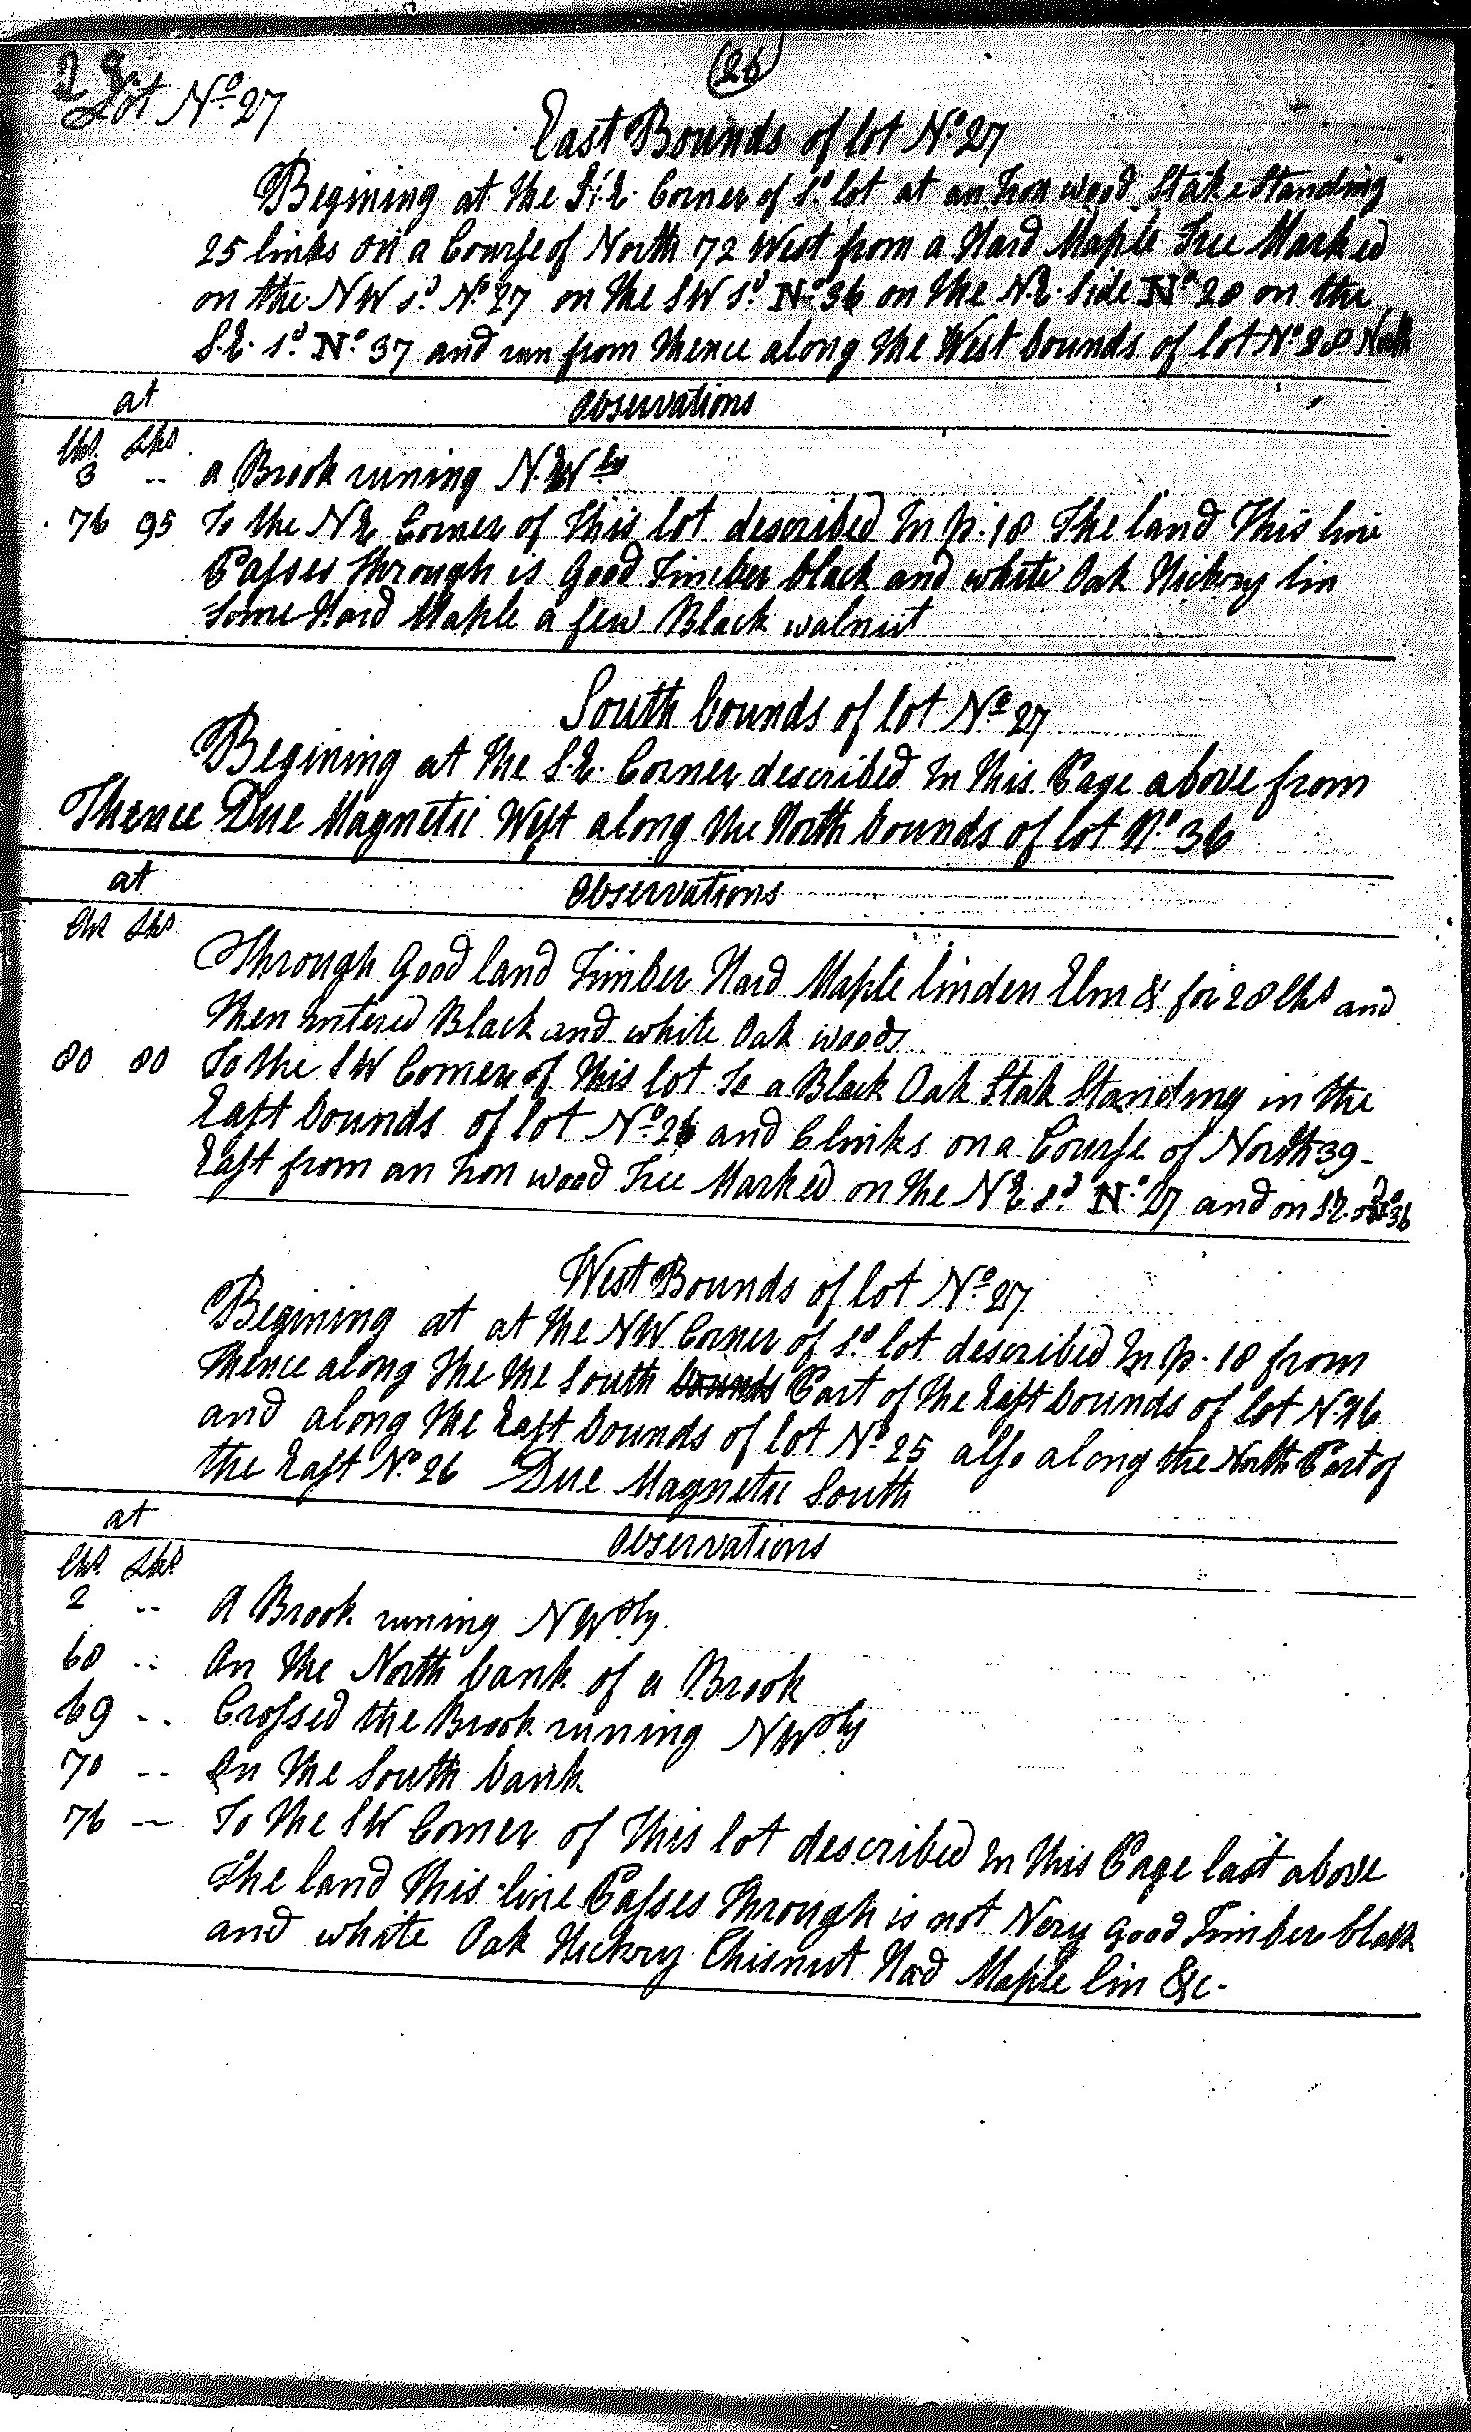 (26)
Lot No 27
East Bounds of lot No 27
Begining at the S.E. Corner of sd lot at an Iron wood Stake Standing
25 links on a Course of North 72 West from a Hard Maple Tree Marked
on the NW sd No 27 on the SW sd No 36 on the N.E. Side No 28 on the
S.E. sd No 37 and run from thence along the West bounds of lot No 28 North
at Observations
Chs Lks
3 .. a Brook runing
76 95 To the NE Corner of this lot described In p. 18 The land This line
Passes through is Good Timber black and white Oak Hickory lin
Some Hard Maple a few Black walnut
South bounds of lot No 27
Begining at the S.E. Corner described In this Page above from
Thence Due Magnetic West along the North bounds of lot No 36
at Observations
Chs Lks
Through Good land Timber Hard Maple linden Elm & for 28 Chs and
then entered Black and white Oak woods
80 80 To the SW Corner of this lot to a Black Oak Stak Standing in the
East bounds of lot No 26 and 6 links on a Course of North 39
East from an Iron wood Tree Marked on the NE sd No 27 and on S.E. sd No 36
West Bounds of lot No 27
Begining at at the NW Corner of sd lot described In p. 18 from
thence along the the South bounds Part of the East bounds of lot N
and along the East bounds of lot No 25 also along the North Part of
the East No 26 Due Magnetic South
at Observations
Chs Lks
2 .. A Brook runing NWdly
60 .. On the North bank of a Brook
69 .. Crossed the Brook runing NWdly
70 .. On the South bank
76 -- To the SW Corner of this lot described In this Page last above
The land this line Passes through is not Very Good Timber black
and white Oak Hickory Chisnut Had Maple lin &c-